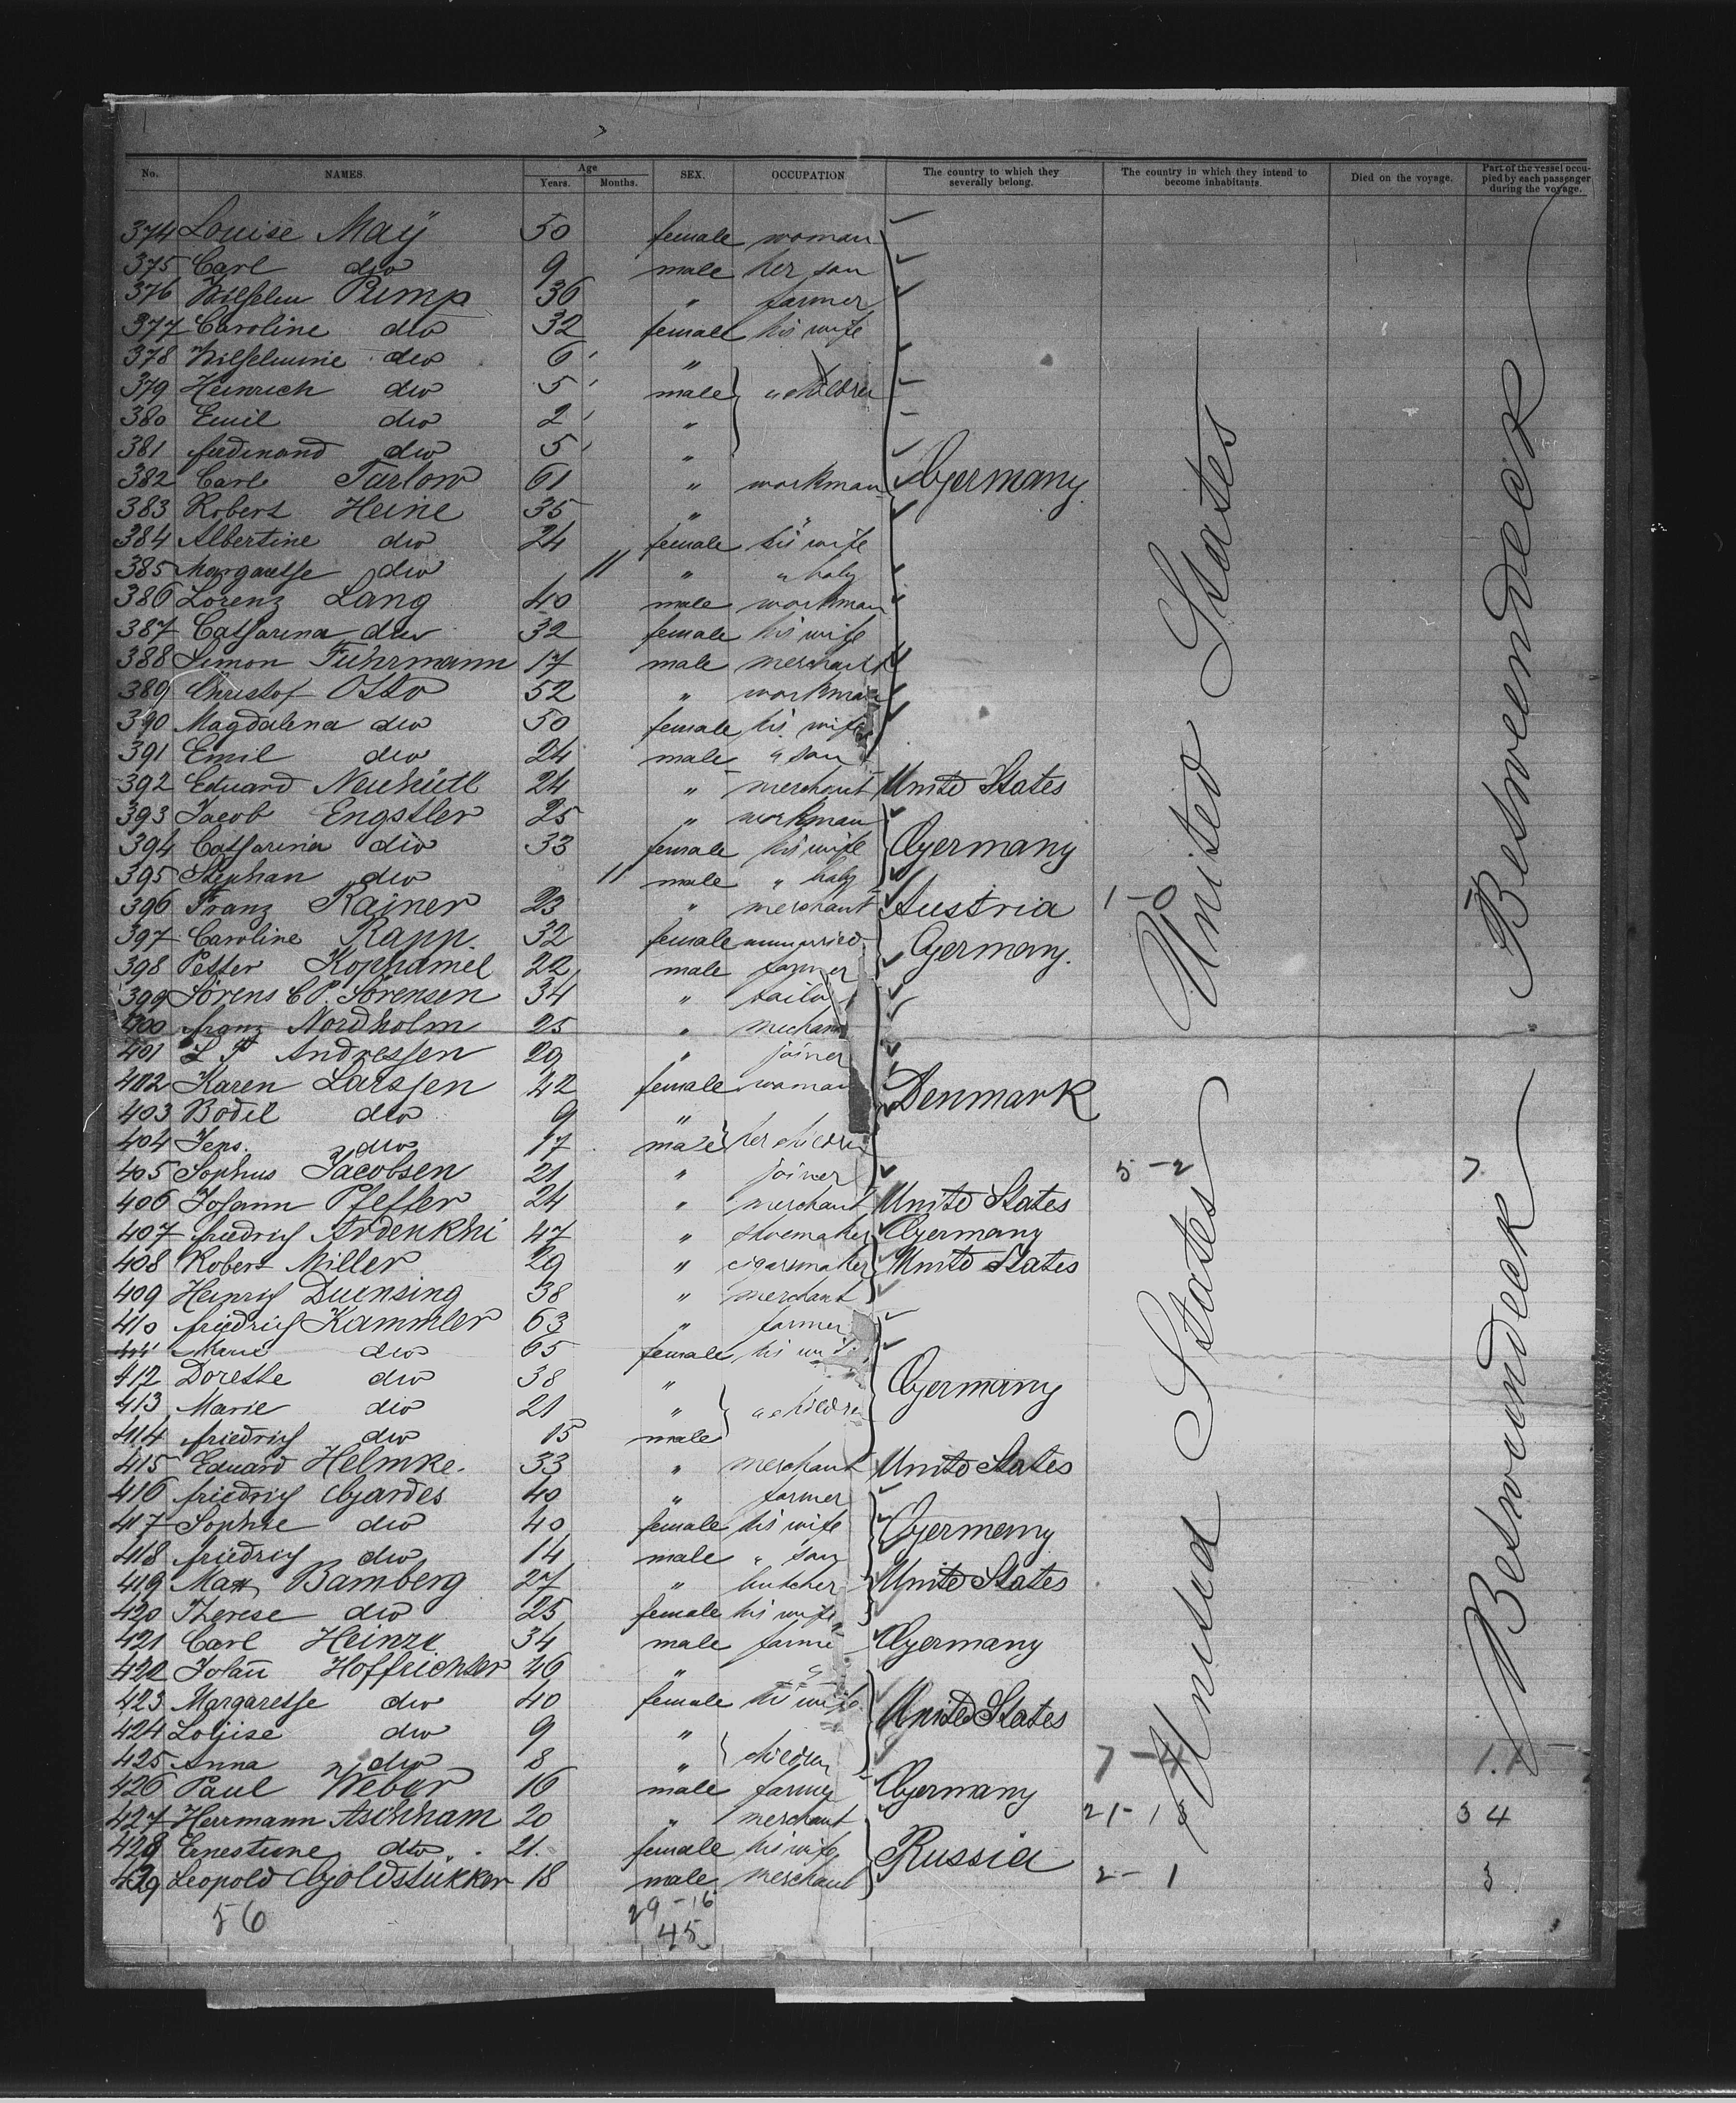 No. NAMES. Age Years. Months. SEX. OCCUPATION The country to which they severally belong. The country in which they intend to become inhabitants. Died on the voyage. Part of the vessel occupied by each passenger during the voyage.
374 Louise Maÿ 50 female woman
375 Carl dio 9 male her son
376 Wilhelm Pump 36 " farmer
377 Caroline dio 32 female his wife
378 Wilhelmine dio 6 "
379 Heinrich dio 5 male " children
380 Emil dio 2 "
381 ferdinand dio 5 "
382 Carl Tarlow 61 " workman Germany
383 Robert Heine 35 " "
384 Albertine dio 24 female his wife
385 Margarethe dio 11 " " baby
386 Lorenz Lang 40 male workman
387 Catharina dio 32 female his wife
388 Simon Fuhrmann 17 male merchant
389 Christof Otto 52 " workman
390 Magdalena dio 50 female his wife
391 Emil dio 24 male " son
392 Eduard Neuhütl 24 " merchant Unitd States
393 Jacob Engstler 25 " workman
394 Catharina dio 33 female his wife Germany
395 Stephan dio 11 male " baby
396 Franz Rainer 23 " merchant Austria 1-0
397 Caroline Rapp. 32 female unmarried Germany.
398 Petter Kophamel 22 male farmer
399 Sörens C P. Sörensen 34 " tailor
400 franz Nordholm 25 " mechanic
401 L P Andressen 29 " joiner
402 Karen Larssen 42 female woman Denmark
403 Bodil dio 9 "
404 Jens. dio 17 male her children
405 Sophus Jacobsen 21 " joiner 5-2 7
406 Johann Pfeffer 24 " merchant Unitd States
407 friedrich Ardenkhi 47 " shoemaker Germany
408 Robert Miller 29 " cigarsmaker Unitd States
409 Heinrich Duensing 38 " merchant
410 friedrich Kammler 63 " farmer
411 Marie dio 65 female his wife
412 Dorette dio 38 " Germany
413 Marie dio 21 " " children
414 friedrich dio 15 male
415 Eduard Helmke. 33 " merchant Unitd States
416 friedrich Gardes 40 " farmer
417 Sophie dio 40 female his wife Germany
418 friedrich dio 14 male " son
419 Max Bamberg 27 " butcher United States
420 Therese dio 25 female his wife
421 Carl Heinze 34 male farmer Germany
422 Johañ Hoffrichter 46 " "
423 Margarethe dio 40 female his wife United States
424 Louise dio 9 "
425 Anna dio 8 " children 7-4 1.1
426 Paul Weber 16 male farmer Germany
427 Herrmann Aschham 20 " merchant 21-13 34
428 Ernestine dio 21. female his wife Russia
429 Leopold Goldstükker 18 male merchant 2-1 3
56 29-16
45
United States
Betweendeck
United States
Betweendeck